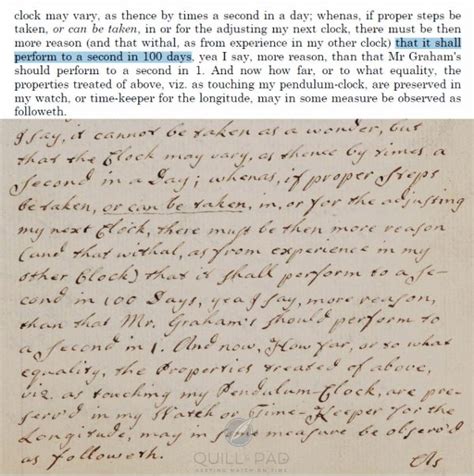 clock may vary, as thence by times a second in a day; whenas, if proper steps be
taken, or can be taken, in or for the adjusting my next clock, there must be then
more reason (and that withal, as from experience in my other clock) that it shall
perform to a second in 100 days, yea I say, more reason, than that Mr Graham's
should perform to a second in 1. And now how far, or to what equality, the
properties treated of above, viz. as touching my pendulum-clock, are preserved in
my watch, or time-keeper for the longitude, may in some measure be observed as
followeth.
I say, it cannot be taken as a wonder, but
that the Clock may vary, as thence by times a
Second in a Day; whenas, if proper Steps
be taken, or can be taken, in, or for the adjusting
my next Clock, there must be then more reason
(and that withal, as from experience in my
other Clock) that it shall perform to a se-
cond in 100 Days, yea I say, more reason,
than that Mr. Graham's should perform to
a Second in 1. And now, How far, or to what
equality, the Properties treated of above,
viz. as touching my Pendulum-Clock, are pre-
serv'd in my Watch or Time-Keeper for the
Longitude, may in some measure be observ'd
as followeth.
As
QUILL & PAD
KEEPING WATCH ON TIME